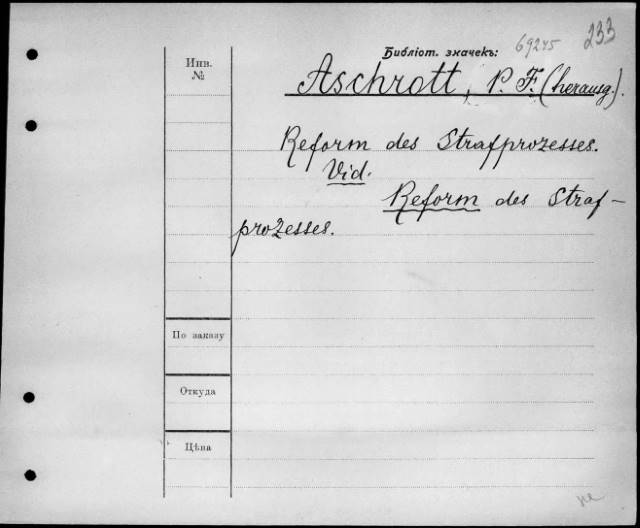 Библіот. значекъ: 69245 233
Инв. №
Aschrott, P. F. (herausg.).
Reform des Strafprozesses.
Vid.
Reform des Straf-
prozesses.
По заказу
Откуда
Цѣна